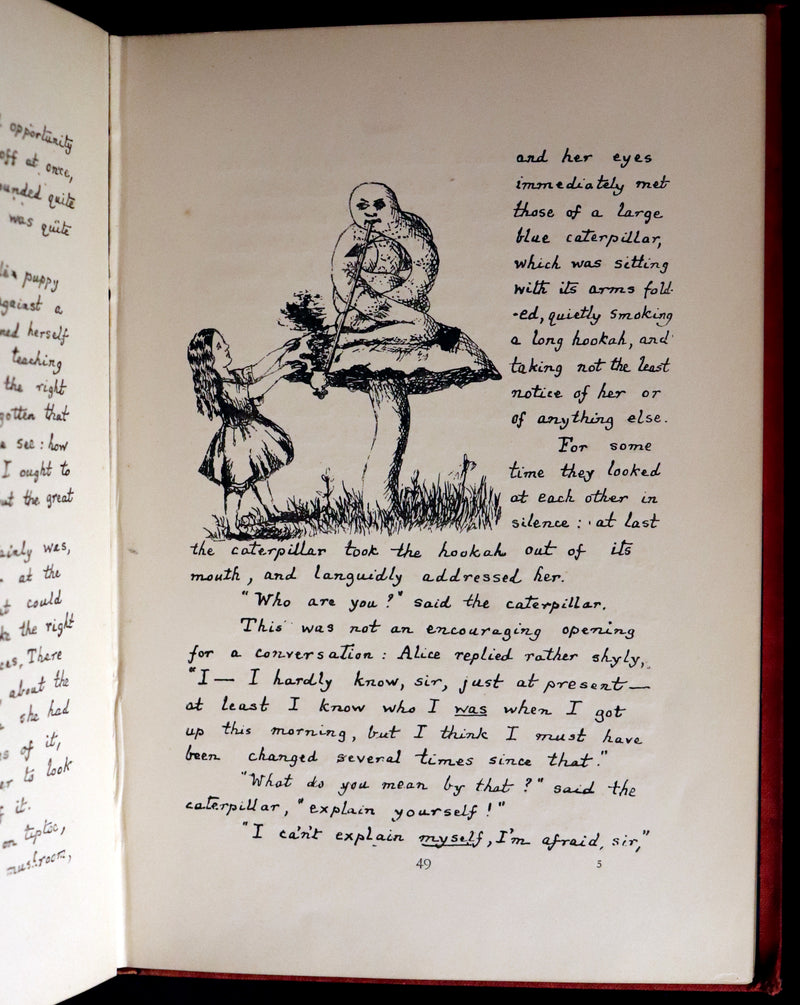 opportunity
off at once,
quite
was quite
puppy
against a
herself
teaching
the right
that
see : how
I ought to
the great
was,
at the
could
the right
There
about the
she had
of it,
to look
it.
on tiptoe,
mushroom,
and her eyes
immediately met
those of a large
blue caterpillar,
which was sitting
with its arms fold-
-ed, quietly smoking
a long hookah, and
taking not the least
notice of her or
of anything else.
For some
time they looked
at each other in
silence : at last
the caterpillar took the hookah out of its
mouth, and languidly addressed her.
"Who are you?" said the caterpillar.
This was not an encouraging opening
for a conversation : Alice replied rather shyly,
"I— I hardly know, sir, just at present—
at least I know who I was when I got
up this morning, but I think I must have
been changed several times since that."
"What do you mean by that?" said the
caterpillar, "explain yourself!"
"I can't explain myself, I'm afraid, sir,"
49 5